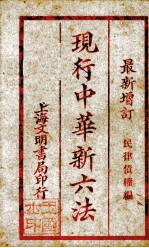 最新增訂
民律債權編
現行中華新六法
上海文明書局印行